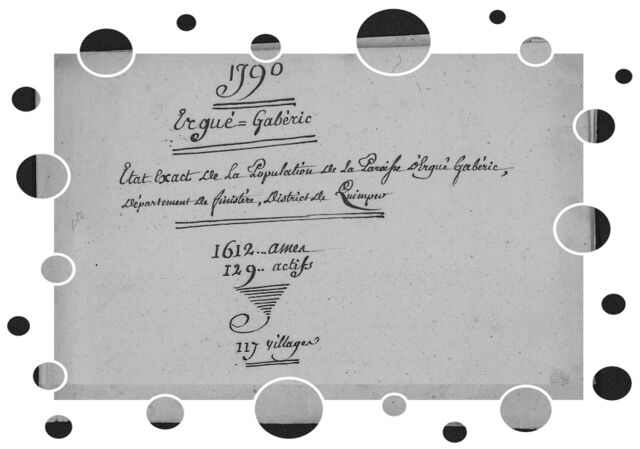 1790
Ergué=Gabéric
Etat Exact de la Population de la Paroisse d'Ergué Gabéric,
département de finistère, district de Quimper
1612... ames
129.. actifs
117 villages